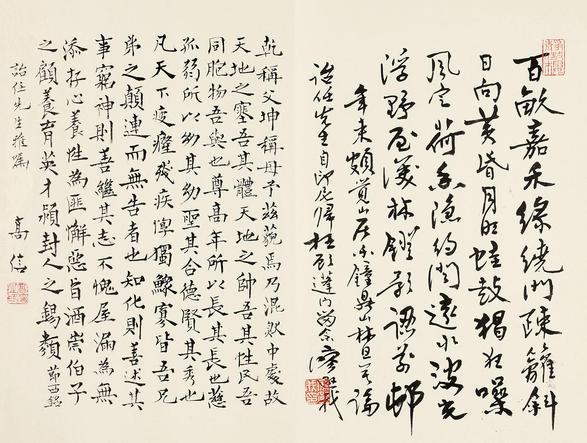 百畝嘉禾綠繞門疎籬斜
日向黃昏月明蛙鼓猖狂噪
風定荷香隱約聞遠水波光
浮野屋林燈影語前邨
年來頗覺山居鐘鼎山林且莫論
詒任先生自印尼歸枉顧蓬門留念 廖
乾稱父坤稱母予茲藐焉乃混然中處故
天地之塞吾其體天地之帥吾其性民吾
同胞物吾與也尊高年所以長其長也慈
孤弱所以幼其幼聖其合德賢其秀也
凡天下疲癃殘疾惸獨鰥寡皆吾兄
弟之顛連而無告者也知化則善述其
事窮神則善繼其志不愧屋漏為無
添存心養性為匪懈惡旨酒崇伯子
之顧養育英才潁封人之錫類 節西銘
詒任先生雅屬 高信